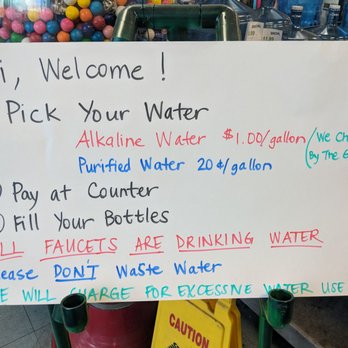 i, Welcome!
Pick Your Water
Alkaline Water $1.00/gallon (We Ch
By The G
Purified Water 20¢/gallon
) Pay at Counter
) Fill Your Bottles
LL FAUCETS ARE DRINKING WATER
ease DON'T Waste Water
E WILL CHARGE FOR EXCESSIVE WATER USE
CAUTION